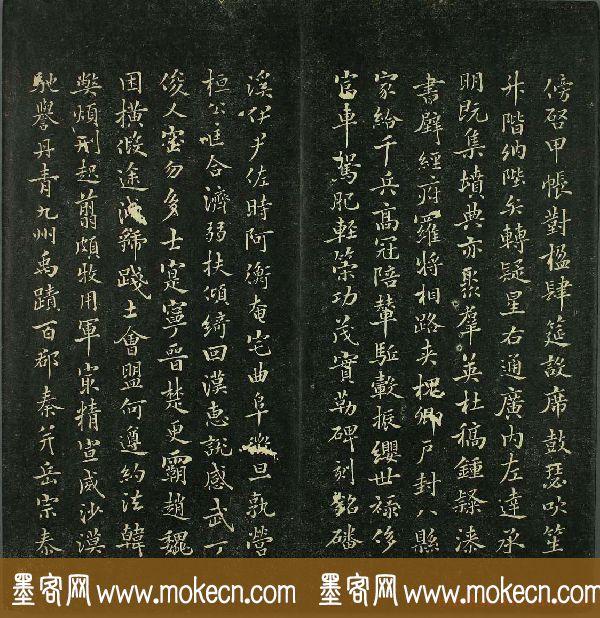 傍啓甲帳對楹肆筵設席鼓瑟吹笙
升階納陛弁轉疑星右通廣内左達承
明既集墳典亦聚羣英杜稿鍾隸漆
書壁經府羅將相路夾槐卿戶封八縣
家給千兵高冠陪輦駈轂振纓世祿侈
富車駕肥輕策功茂實勒碑刻銘磻
溪伊尹佐時阿衡奄宅曲阜微旦孰營
桓公匡合濟弱扶傾綺回漢惠說感武丁
俊乂密勿多士寔寧晉楚更霸趙魏
困橫假途滅虢踐土會盟何遵約法韓
弊煩刑起翦頗牧用軍最精宣威沙漠
馳譽丹青九州禹蹟百郡秦并岳宗泰
墨客网 www.mokecn.com 墨客网 www.mokecn.com